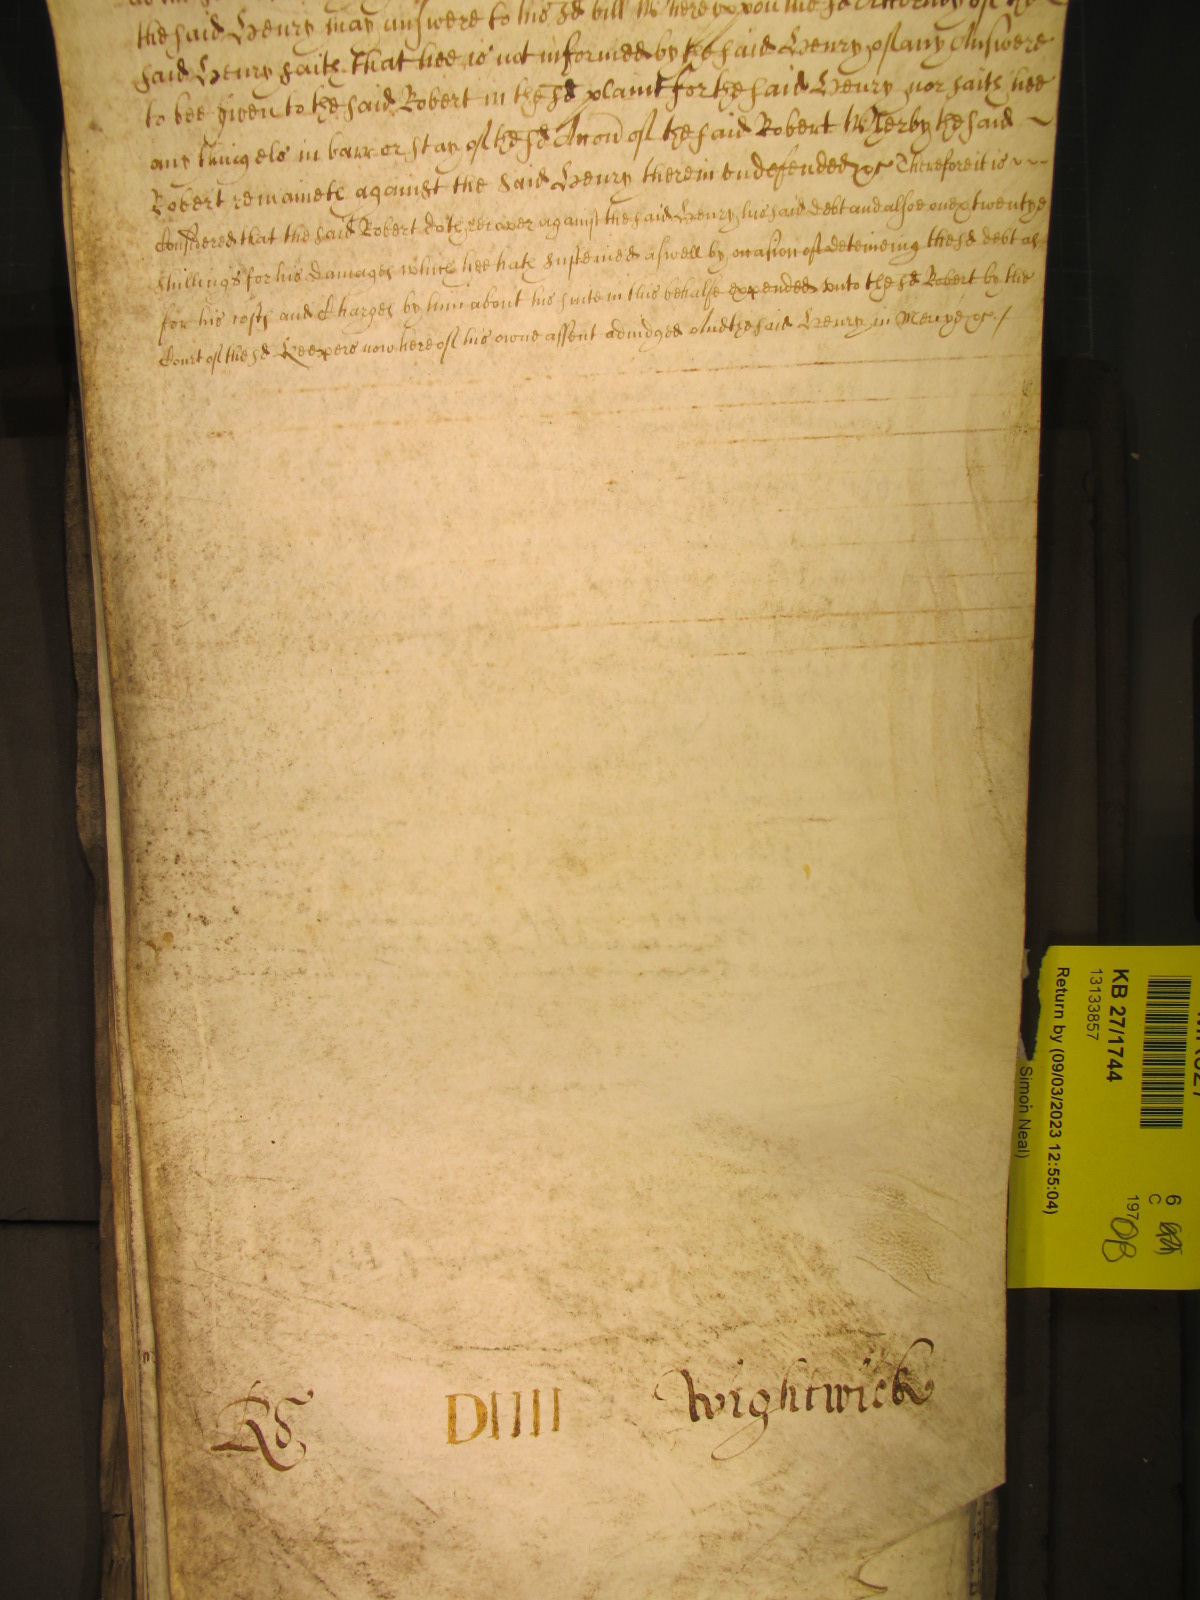 the said Henry may answere to his sd bill Whereupon the sd Attorney of the
said Henry saith that hee is not informed by the said Henry of any Answere
to bee given to the said Robert in the sd plaint for the said Henry nor saith hee
any thing els in barr or stay of the sd Accon of the said Robert Wherby the said
Robert remaineth against the said Henry therein undefended &c Therefore it is
Considered that the said Robert doth recover against the said Henry his said debt and alsoe twentye
shillings for his Damages which hee hath susteined aswell by occasion of deteineing the sd debt as
for his costs and Charges by him about his suite in this behalfe expended unto the sd Robert by the
Court of the sd Keepers now here of his owne assent adiudged And the said Henry in Mercye &c /
DIIII
Wightwick
KB 27/1744
13133857
Return by (09/03/2023 12:55:04)
Simon Neal)
6
C
197